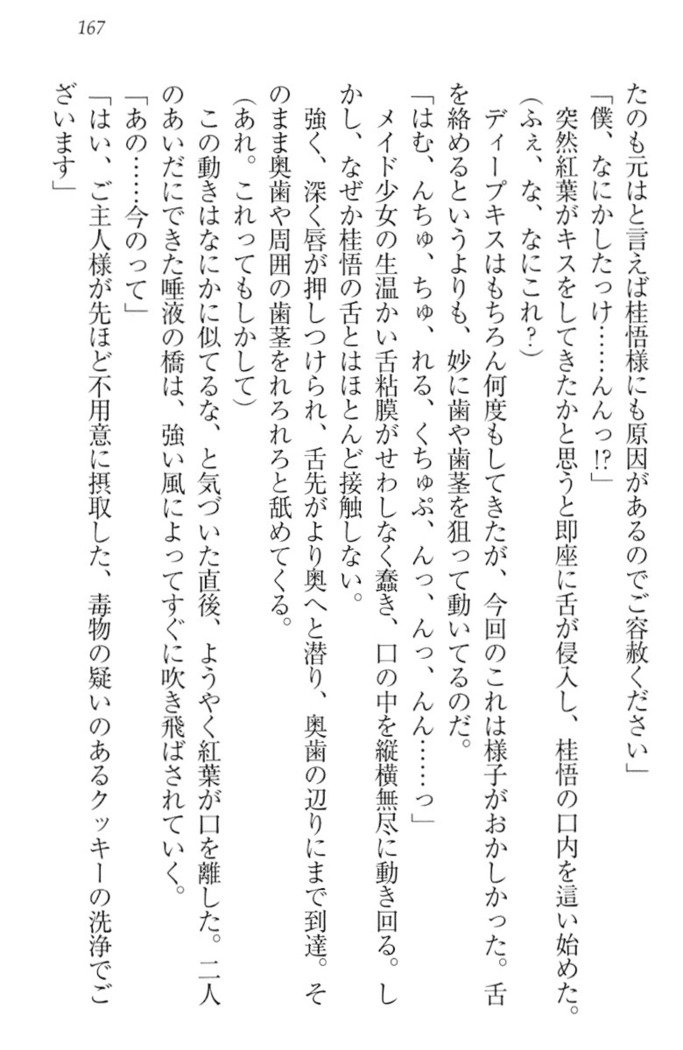 167
たのも元はと言えば桂悟様にも原因があるのでご容赦ください」
「僕、なにかしたっけ……んんっ!?」
突然紅葉がキスをしてきたかと思うと即座に舌が侵入し、桂悟の口内を這い始めた。
(ふぇ、な、なにこれ?)
ディープキスはもちろん何度もしてきたが、今回のこれは様子がおかしかった。舌
を絡めるというよりも、妙に歯や歯茎を狙って動いてるのだ。
「はむ、んちゅ、ちゅ、れる、くちゅぷ、んっ、んっ、んん……っ」
メイド少女の生温かい舌粘膜がせわしなく蠢き、口の中を縦横無尽に動き回る。し
かし、なぜか桂悟の舌とはほとんど接触しない。
強く、深く唇が押しつけられ、舌先がより奥へと潜り、奥歯の辺りにまで到達。そ
のまま奥歯や周囲の歯茎をれろれろと舐めてくる。
(あれ。これってもしかして)
この動きはなにかに似てるな、と気づいた直後、ようやく紅葉が口を離した。二人
のあいだにできた唾液の橋は、強い風によってすぐに吹き飛ばされていく。
「あの……今のって」
「はい、ご主人様が先ほど不用意に摂取した、毒物の疑いのあるクッキーの洗浄でご
ざいます」